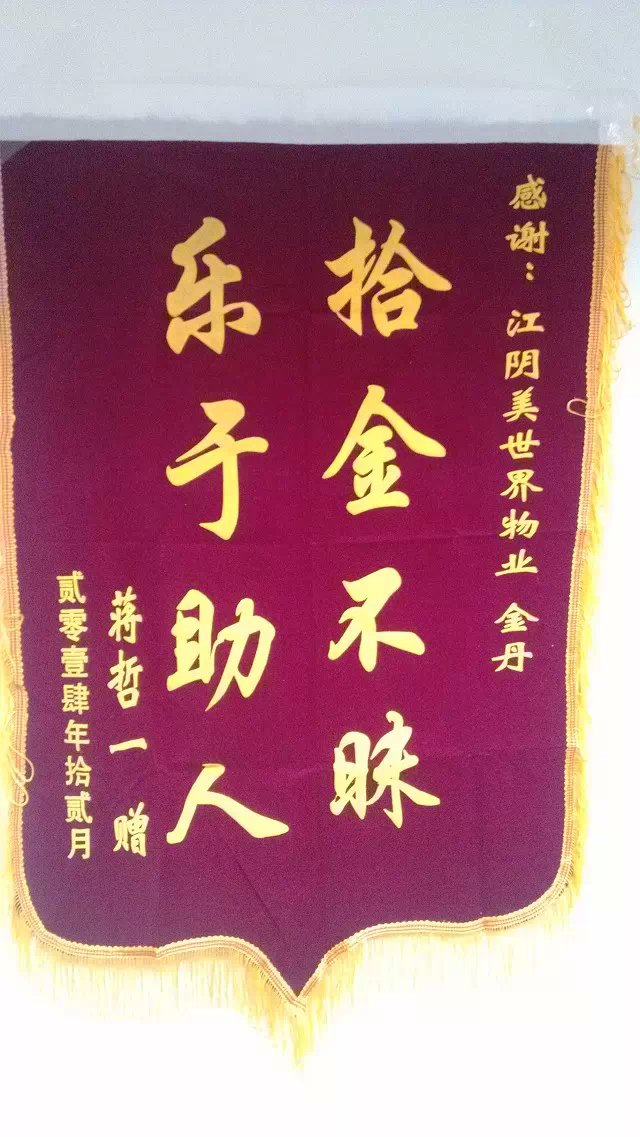 感谢：江阴美世界物业 金丹
拾金不昧
乐于助人
蒋哲一 赠
贰零壹肆年拾贰月